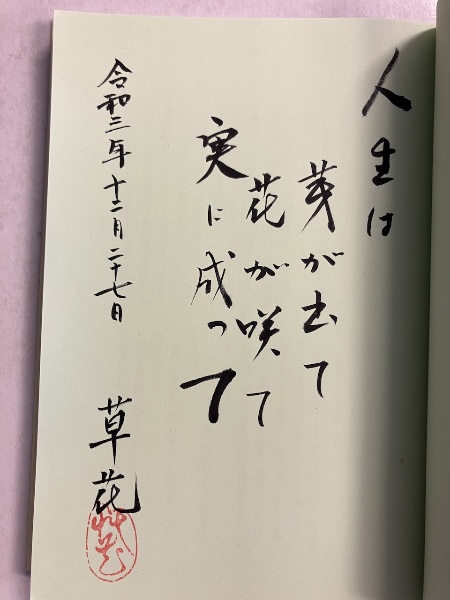 人生は
芽が出て
花が咲いて
実に成って
令和三年十二月二十七日
草花